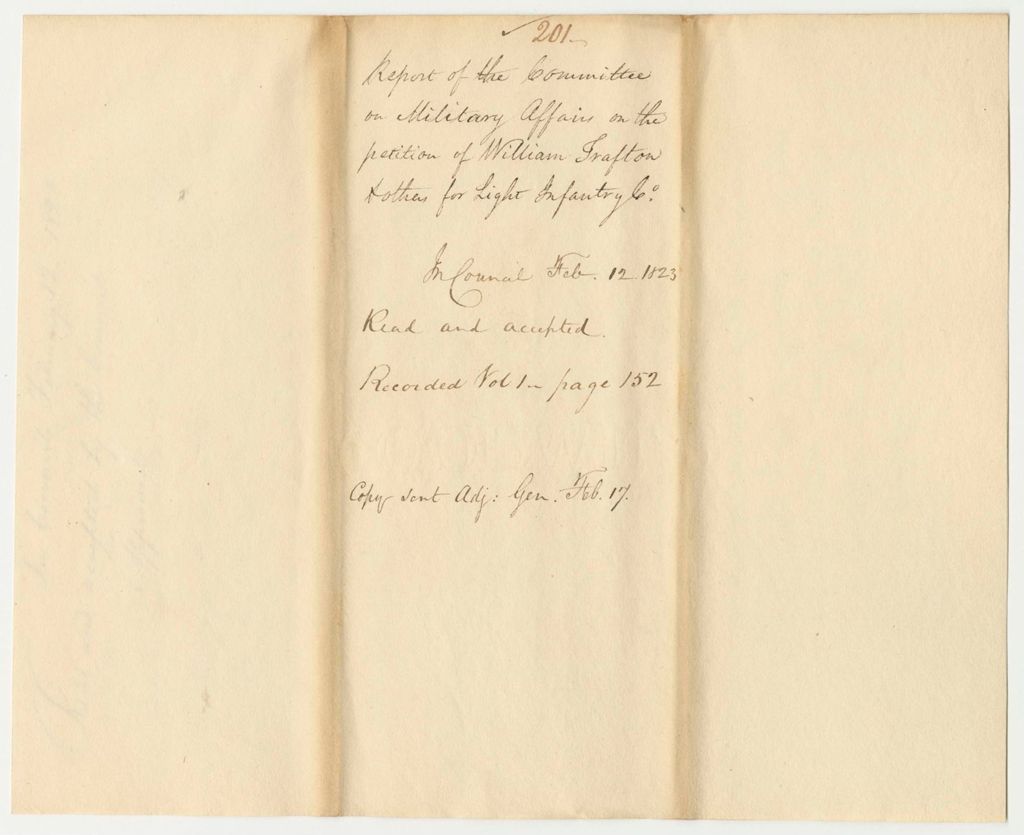 ✓ 201
Report of the Committee
on Military Affairs on the
petition of William Trafton
& others for Light Infantry Co.
In Council Feb. 12. 1823
Read and accepted.
Recorded Vol 1 - page 152
Copy sent Adj: Gen. Feb. 17.